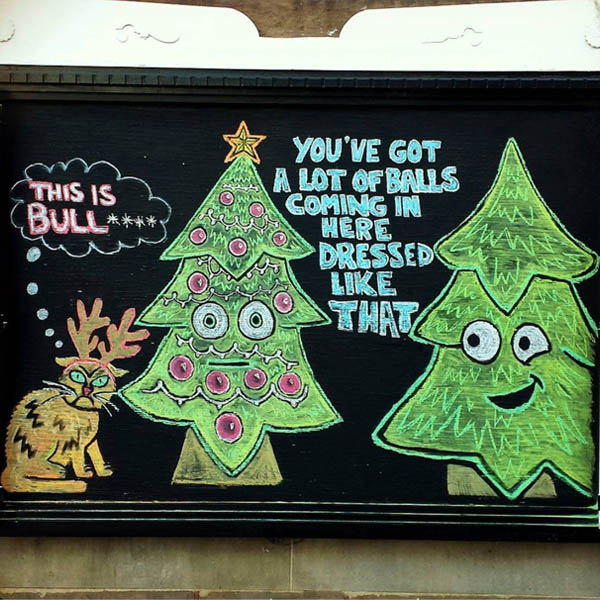 THIS IS
BULL****
YOU'VE GOT
A LOT OF BALLS
COMING IN
HERE
DRESSED
LIKE
THAT